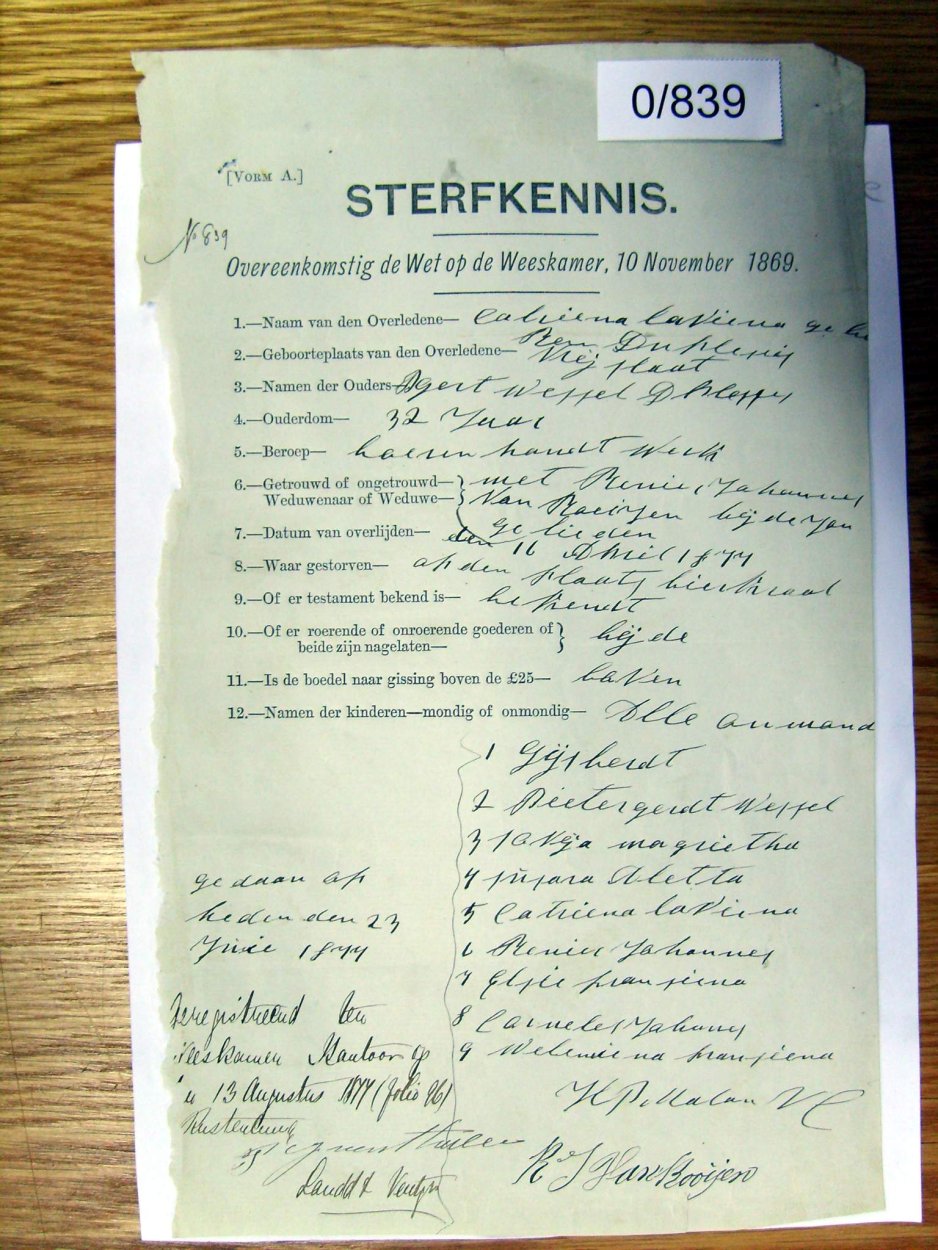 0/839
[Vorm A.]
STERFKENNIS.
No 839
Overeenkomstig de Wet op de Weeskamer, 10 November 1869.
1.—Naam van den Overledene— Catriena laviena
2.—Geboorteplaats van den Overledene— Vrijstaat
3.—Namen der Ouders— gert Wessel
4.—Ouderdom— 32 Jaar
5.—Beroep— handt Werk
6.—Getrouwd of ongetrouwd— met Renier Johannes
Weduwenaar of Weduwe— Van Rooijen
7.—Datum van overlijden— den 16 April 1877
8.—Waar gestorven— op den plaats
9.—Of er testament bekend is— bekendt
10.—Of er roerende of onroerende goederen of
beide zijn nagelaten— bijde
11.—Is de boedel naar gissing boven de £25— boven
12.—Namen der kinderen—mondig of onmondig— Alle onmond
1 Gijsberdt
2 Pietergerdt Wessel
3 magrietha
4 Aletta
5 Catriena laviena
6 Renier Johannes
7 Elsie fransiena
8 Johannes
9 fransiena
gedaan op
heden den 23
Junie 1877
Geregistreerd ten
Weeskamer Kantoor op
13 Augustus 1877 (folio 96)
Rustenburg
H P Malan VC
R J Van Rooijen
Landd